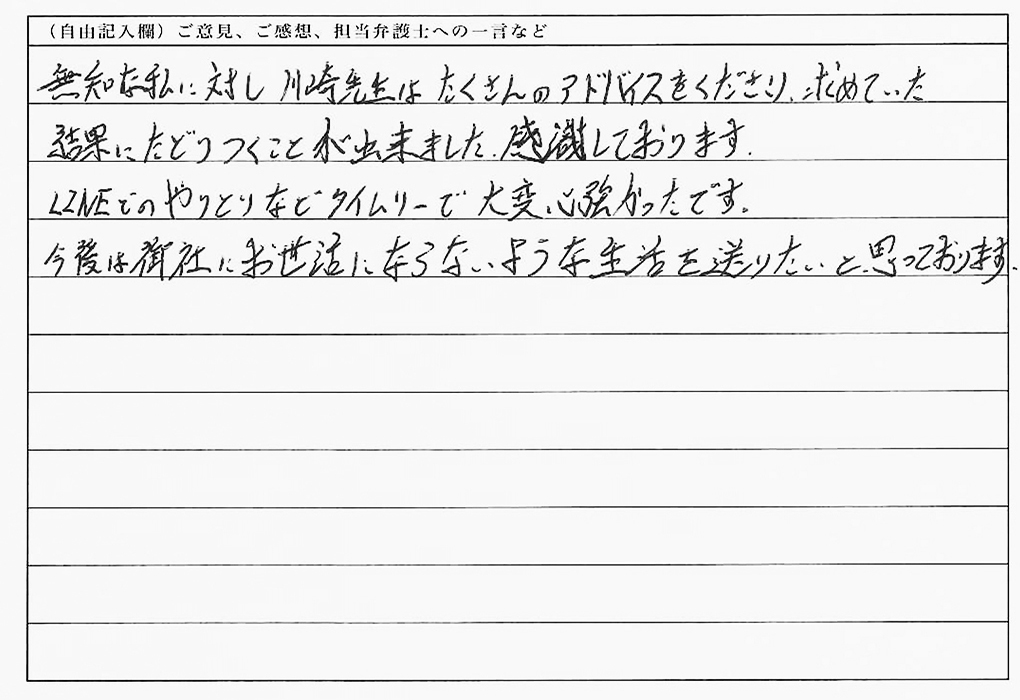 （自由記入欄）ご意見、ご感想、担当弁護士への一言など
無知な私に対し川崎先生はたくさんのアドバイスをくださり、求めていた
結果にたどりつくことが出来ました。感謝しております。
LINEでのやりとりなどタイムリーで大変心強かったです。
今後は御社にお世話にならないような生活を送りたいと思っております。